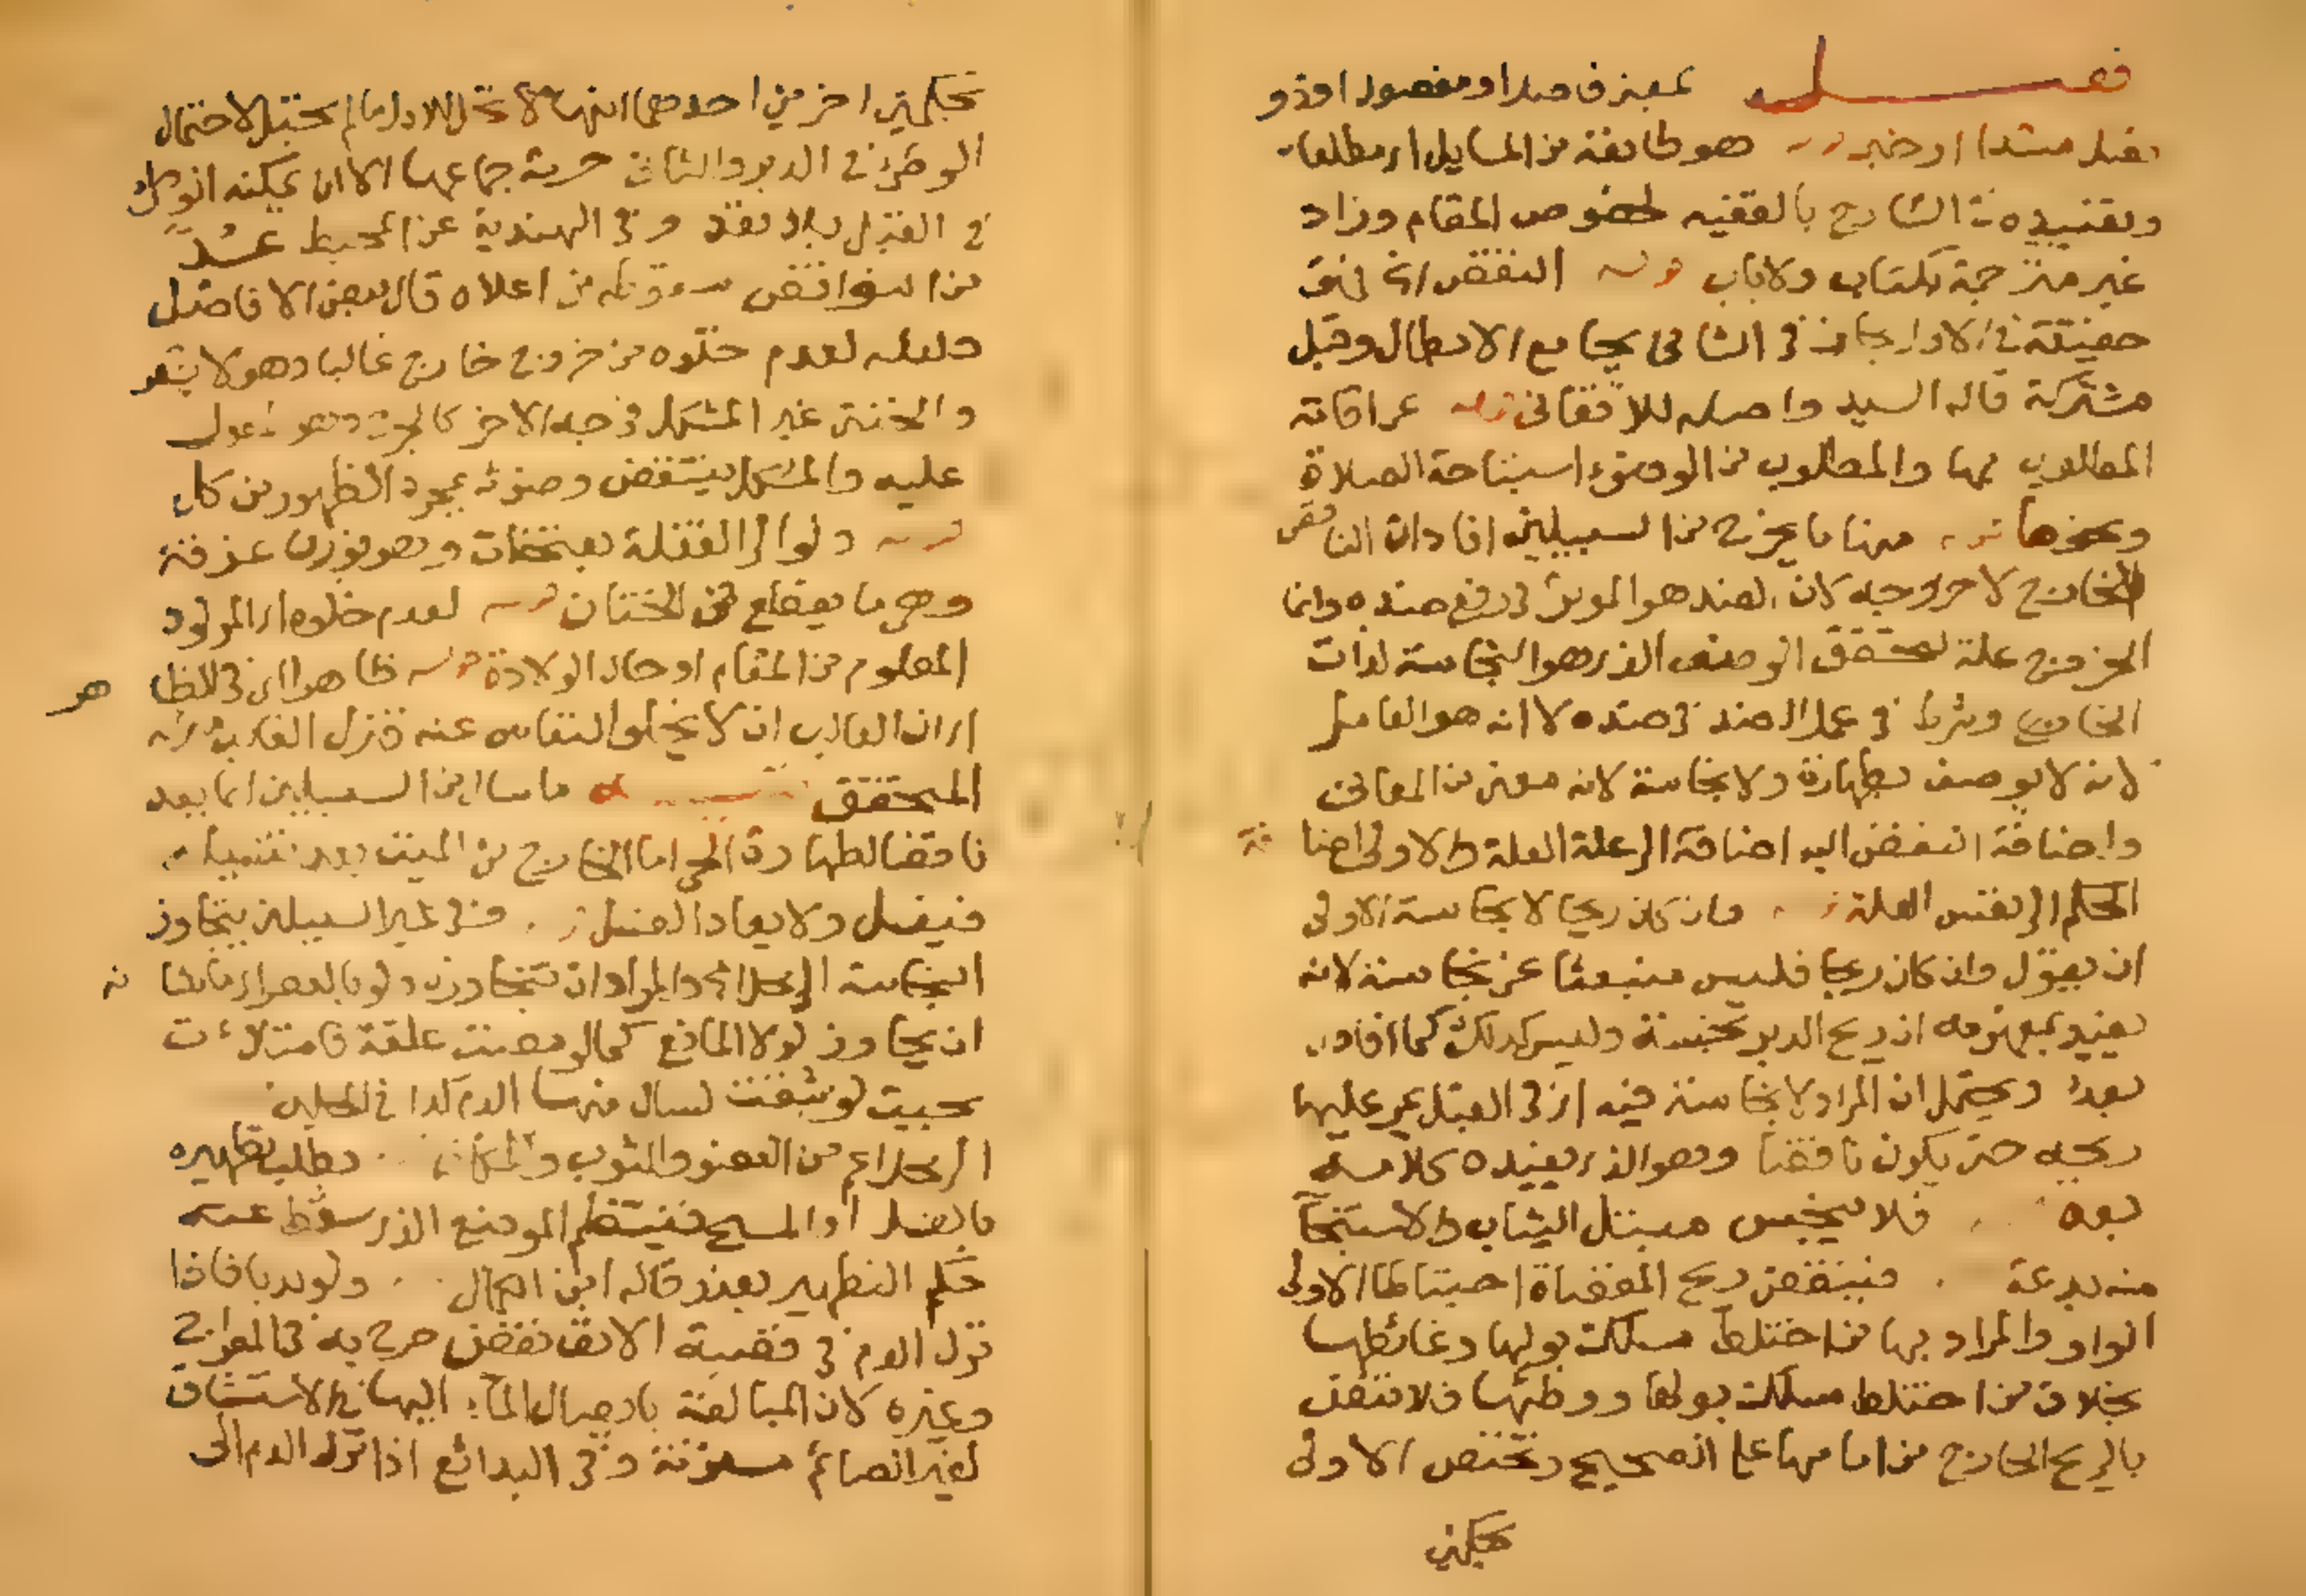 فصل بمعنى فاصل او مفصول او ذو
فصل مبتدا او خبر قوله هو طايفة من المسايل اي مطلقا
وتقييده في الشارح بالفقهيه لخصوص المقام وزاد
غير مترجمة بكتاب ولا باب قوله النقض الخ في
حقيقة في الاول مجاز في الثاني بجامع الابطال وقيل
مشتركة قاله السيد واصله للاتقاني قوله عن افادة
المطلوب بها والمطلوب من الوضوء استباحة الصلاة
ونحوها قوله منها ما يخرج من السبيلين افاد ان الناقض
الخارج لا خروجه لان الضد هو الموثر في رفع ضده وانما
الخروج علة تحقق الوصف الذي هو النجاسة لذات
الخارج وشرط في عمل الضد في ضده لا انه هو العامل
لانه لا يوصف بطهارة ولا نجاسة لانه معنى من المعاني
واضافة النقض اليه اضافة الى علة العلة والاولى اضافة
الحكم الى نفس العلة قوله وان كان ريحا لا نجاسة الاولى
ان يقول وان كان ريحا فليس منبعثا عن نجاسة لانه
يفيد بمفهومه ان ريح الدبر نجسة وليس كذلك كما افاده
بعد ويحتمل ان المراد لا نجاسة فيه اي في القبل يمر عليها
ريحه حتى يكون ناقضا وهو الذي يفيده كلامه
بعده فلا ينجس مبتل الثياب والاستنجا
منه بدعة فينقض ريح المفضاة احتياطا الاولى
الواو والمراد بها من اختلط مسلك بولها وغائطها
بخلاف من اختلط مسلك بولها ووطئها فلا تنقض
بالريح الخارج من امامها على الصحيح وتختص الاولى
بحكمين
بحكمين اخرين احدهما انها لا تحل للاول ما لم تحبل لاحتمال
الوطئ في الدبر والثاني حرمة جماعها الا ان يمكنه الوطئ
في القبل بلا تعد وفي الهندية عن المحيط عد
من النواقض سقوطه من اعلاه قال بعض الافاضل
ولعله لعدم خلوه من خروج خارج غالبا وهو لا يشعر
والخنثى غير المشكل فرجه الاخر كالجرح وهو المعول
عليه والمشكل ينتقض وضوئه بمجرد الظهور من كل
قوله ولو الى القلفة بفتحات وهو بوزن غرفة
وهي ما يقطع في الختان قوله لعدم خلوه اي المولود
المعلوم من المقام او حال الولادة قوله ظاهرا اي في الظاهر
اي ان الغالب ان لا يخلو النفاس عنه فنزل الغالب منزلة
المحقق تنبيه ما سال من السبيلين انما يعد
ناقضا لطهارة الحي اما الخارج من الميت بعد تغسيله
فيغسل ولا يعاد الغسل قوله من غير السبيلين بتجاوز
النجاسة الى محل الخ والمراد ان تتجاوز ولو بالعصر او ما شانه
ان يجاوز لولا المانع كما لو مصت علقة فامتلأت
بحيث لو شقت لسال منها الدم كذا في الحلبي
الى محل اعم من العضو والثوب والمكان يطلب تطهيره
بالغسل او المسح فينتظم الموضع الذي سقط عنه
حكم التطهير بعذر قاله ابن الكمال ولو ندبا فاذا
نزل الدم في قصبة الانف نقض صرح به في المعراج
وغيره لان المبالغة بايصال الماء اليها في الاستنشاق
لغير الصائم مسنونة وفي البدائع اذا نزل الدم الى